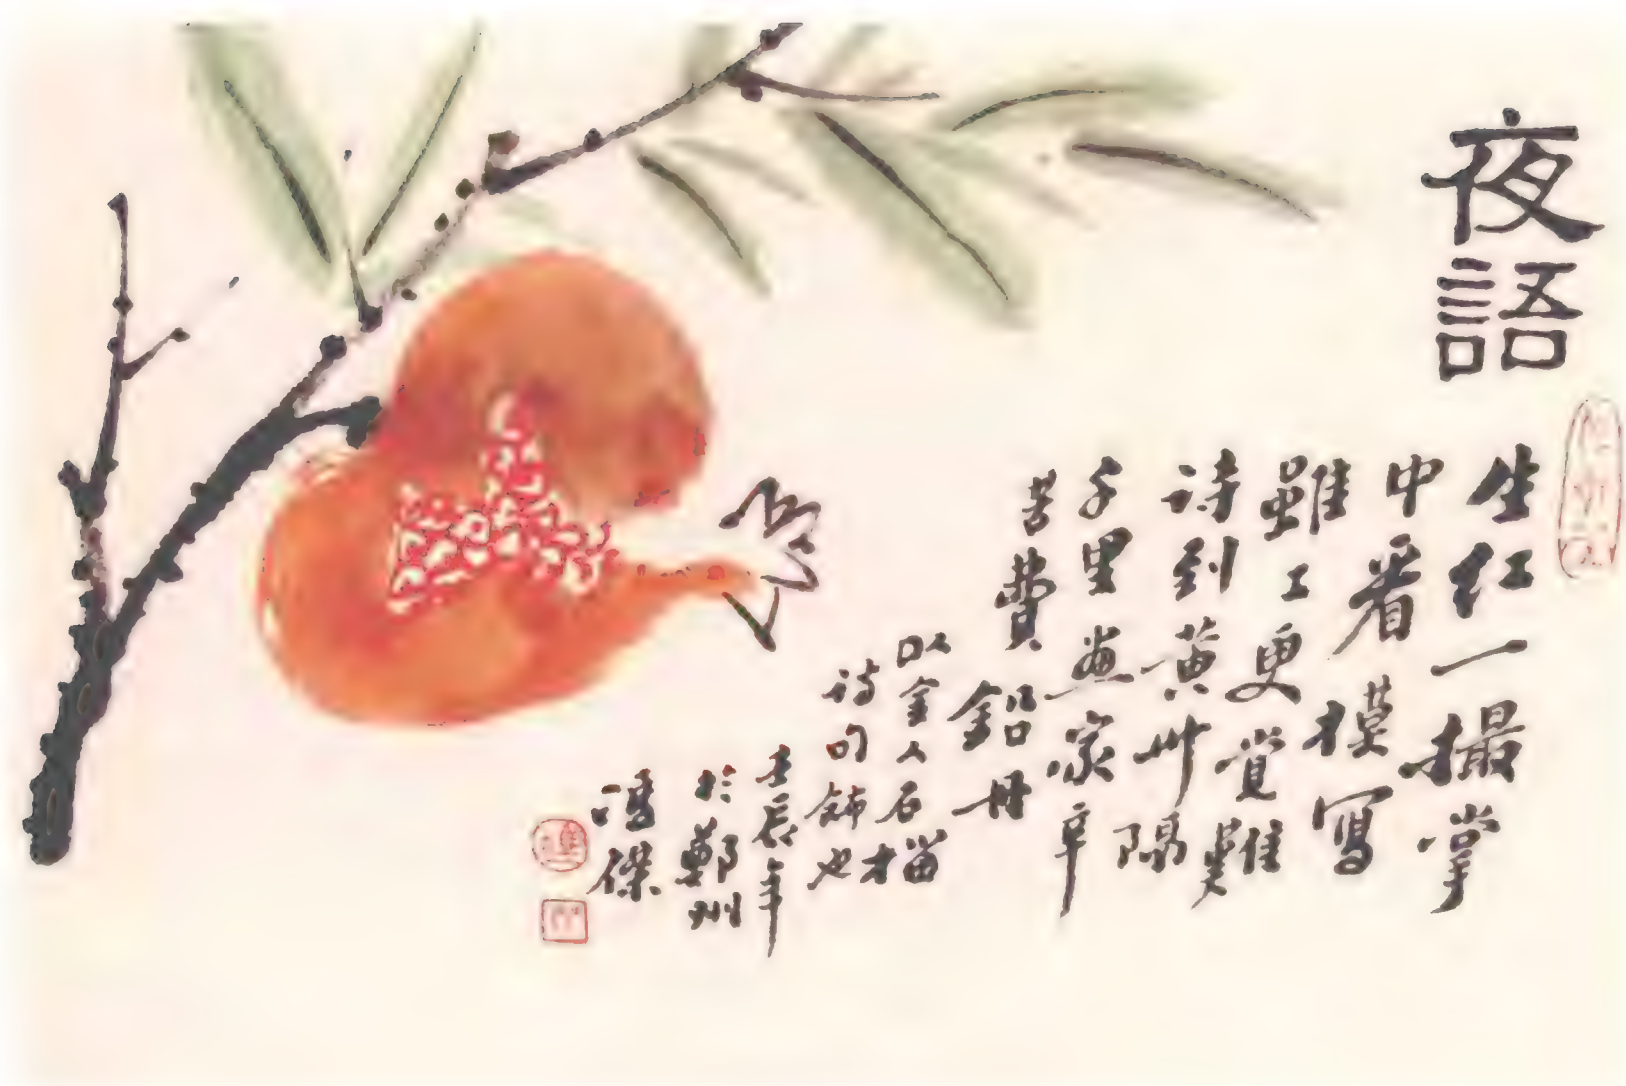 夜語
生红一撮掌
中看摸寫
雖工更覺難
詩到黄州隔
千里畫家辛
苦費鉛丹
以金人石榴
詩句飾也
壬辰年
於鄭州
馮傑